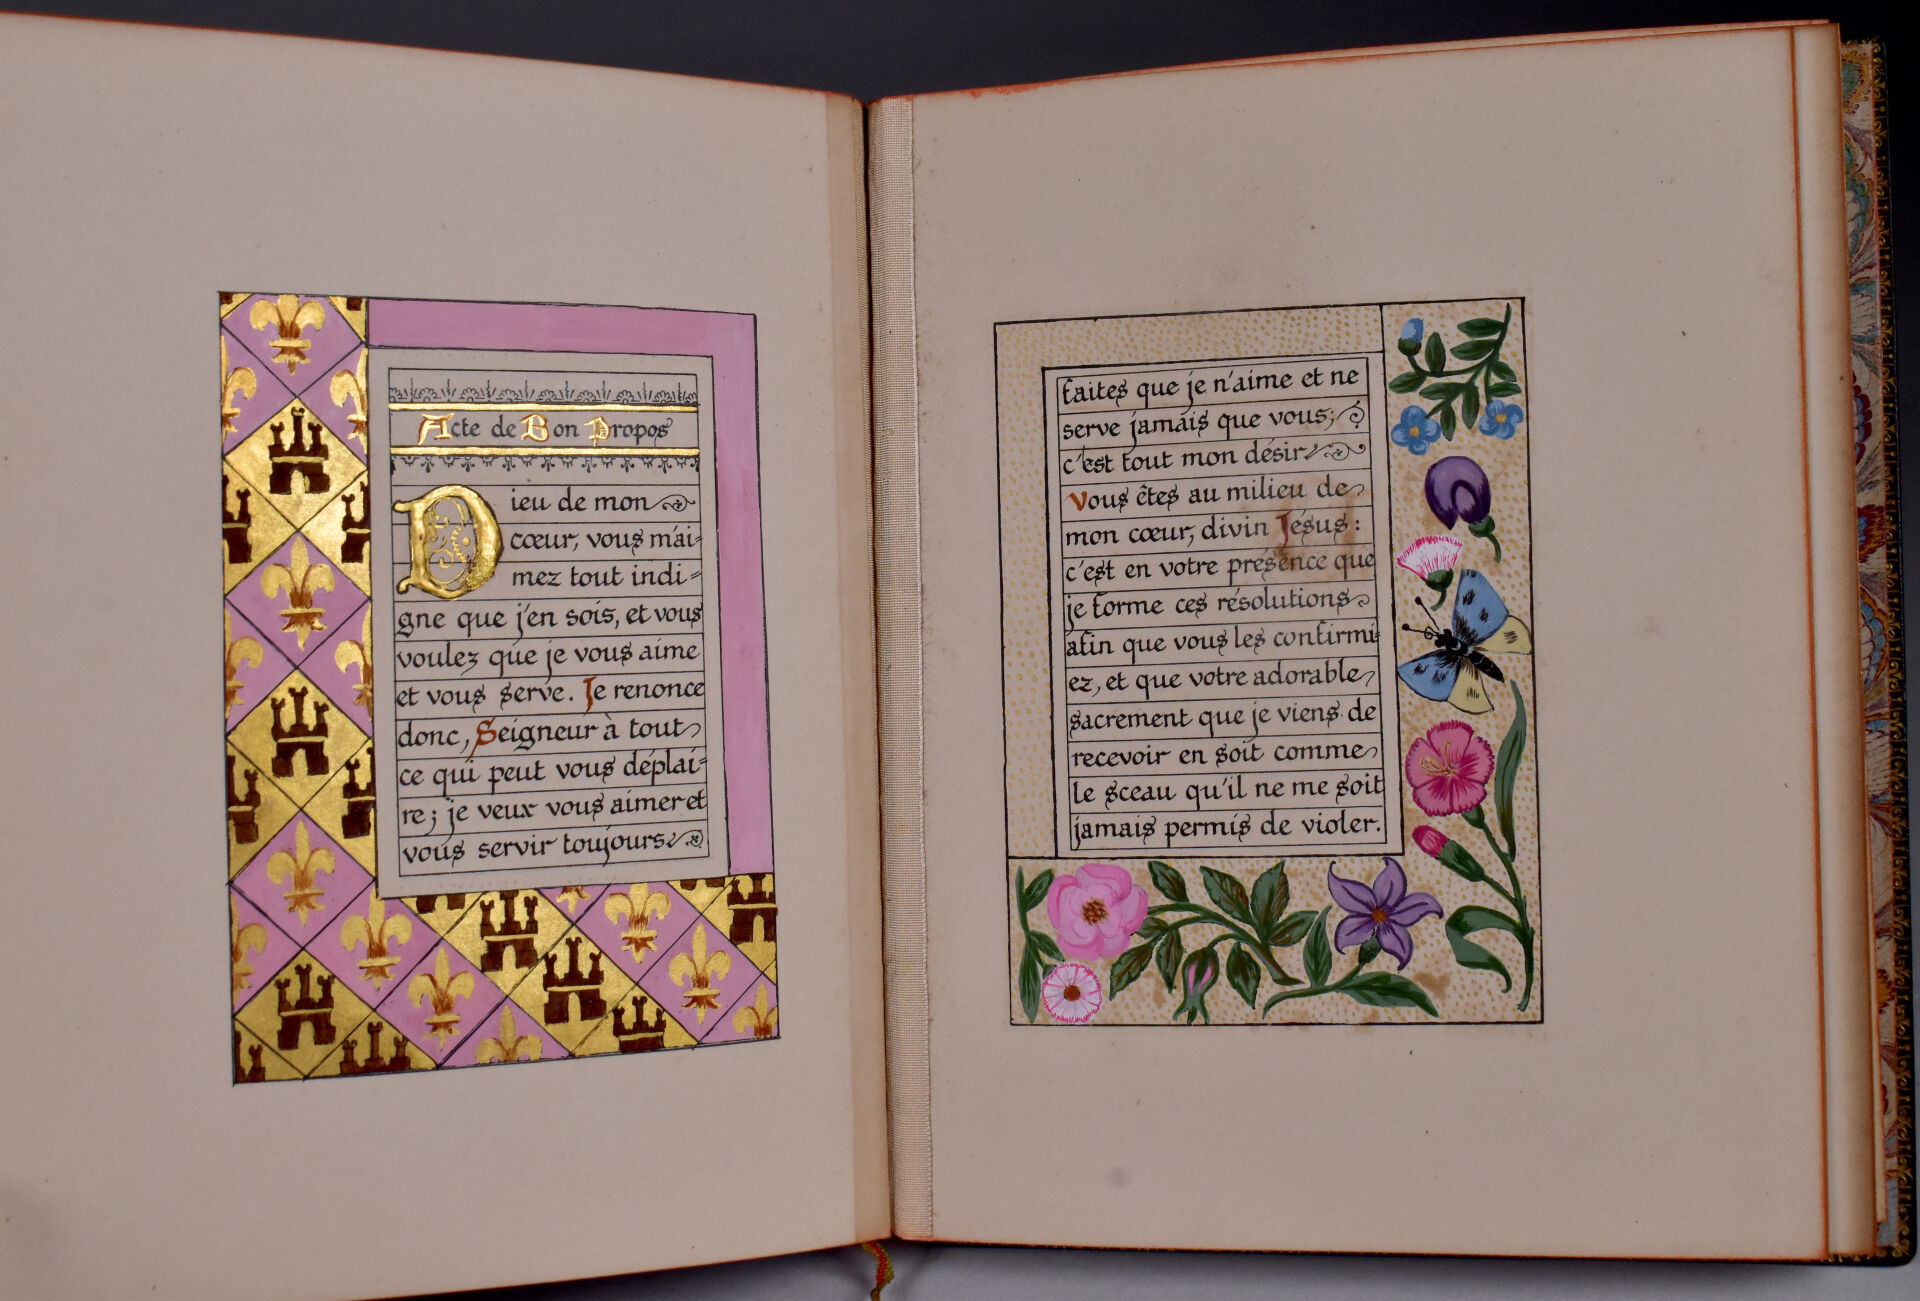 Acte de Bon Propos
Dieu de mon
cœur, vous m'ai=
mez tout indi=
gne que j'en sois, et vous
voulez que je vous aime
et vous serve. Je renonce
donc, Seigneur à tout
ce qui peut vous déplai=
re; je veux vous aimer et
vous servir toujours
faites que je n'aime et ne
serve jamais que vous;
c'est tout mon désir
Vous êtes au milieu de
mon cœur, divin Jésus:
c'est en votre présence que
je forme ces résolutions
afin que vous les confirmi=
ez, et que votre adorable
sacrement que je viens de
recevoir en soit comme
le sceau qu'il ne me soit
jamais permis de violer.